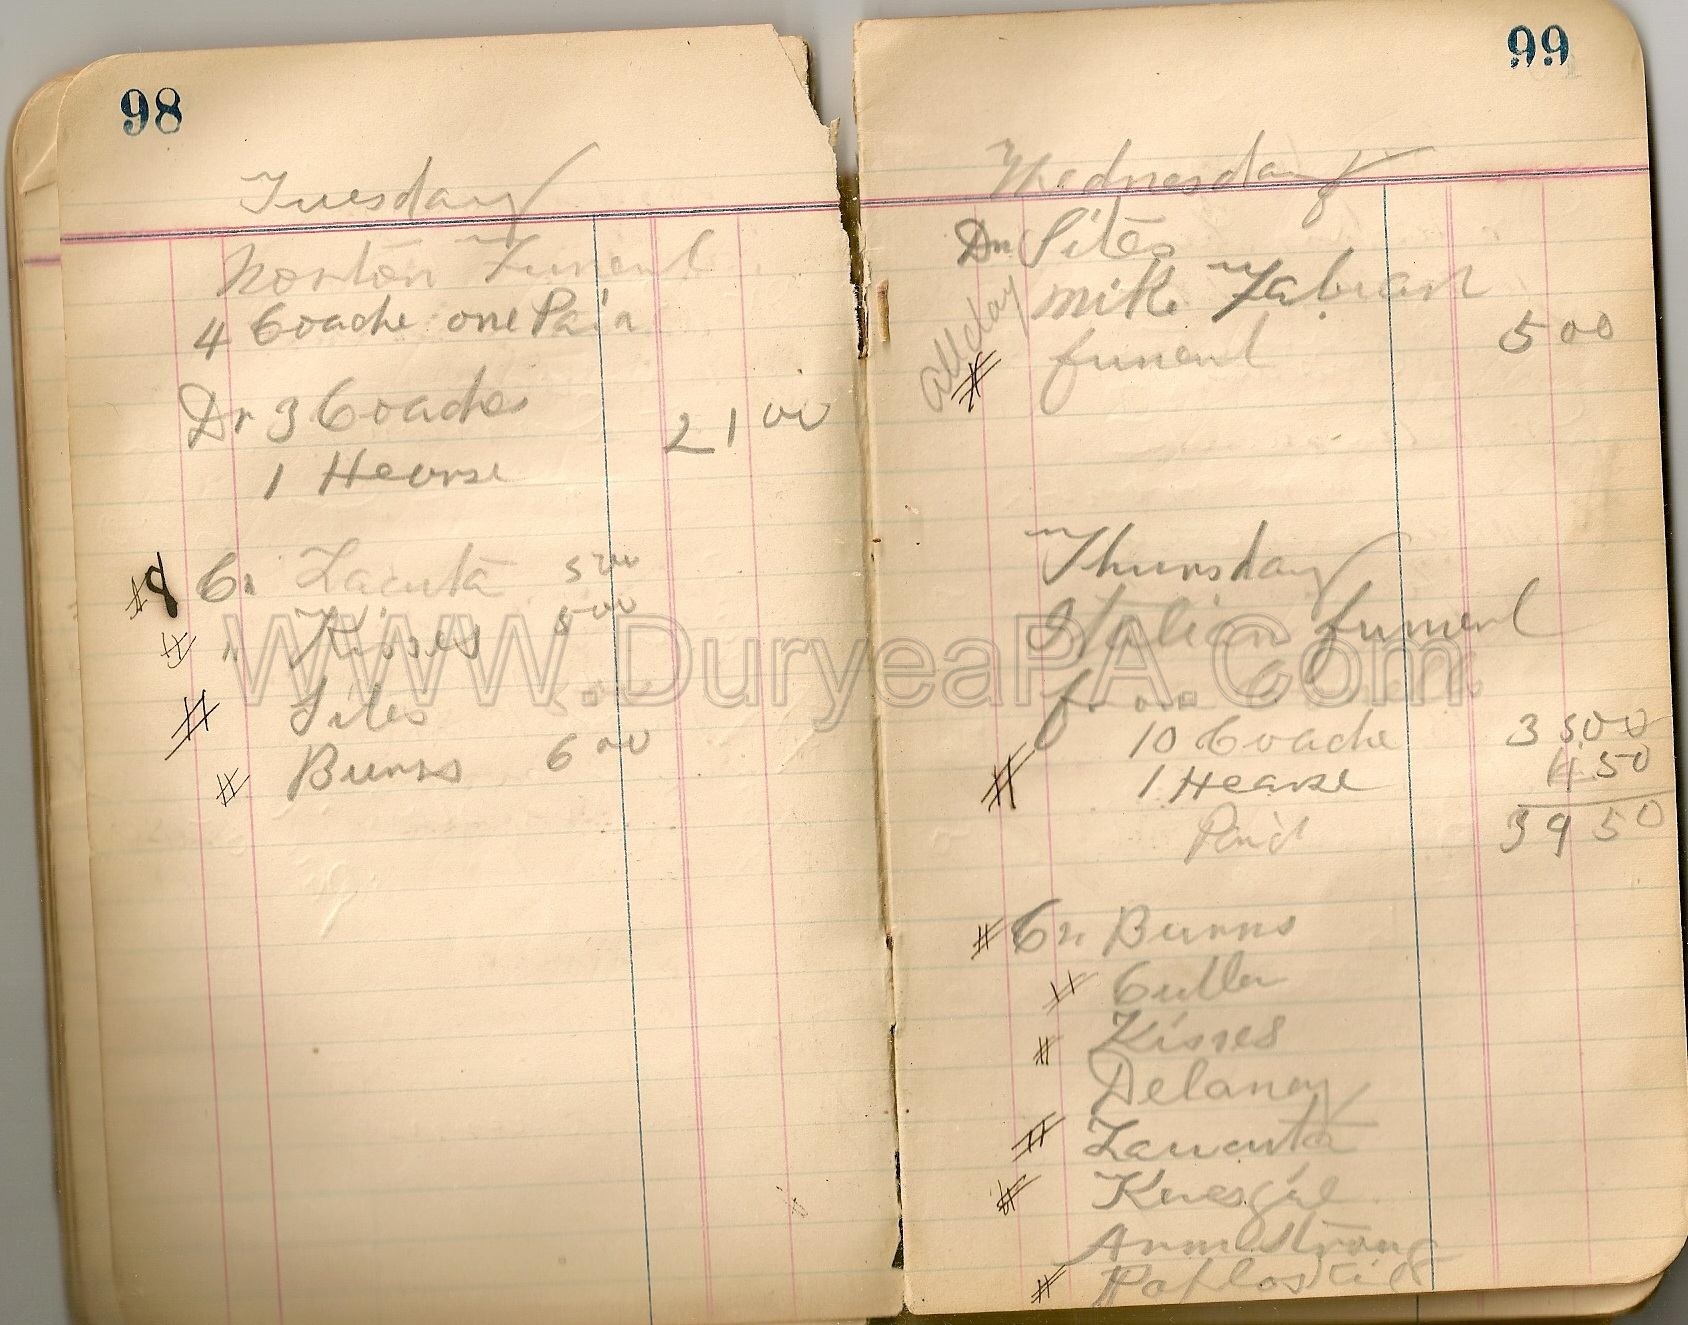 98
Tuesday
Norton Funeral
4 Coache one Pair
Dr 3 Coaches
21 00
1 Hearse
# Cr Lacuta 5 00
# " Kisses 5 00
# Sites 00
# Burns 6 00
99
Wednesday
Dr Sites
all day
Mike Fabian
# funeral 5 00
Thursday
Italian funeral
10 Coache 35 00
# 1 Hearse 4 50
Paid 39 50
# Cr Burns
# Cutler
# Kisses
Delaney
# Lacuta
#
Armstrong
#
WWW.DuryeaPA.Com